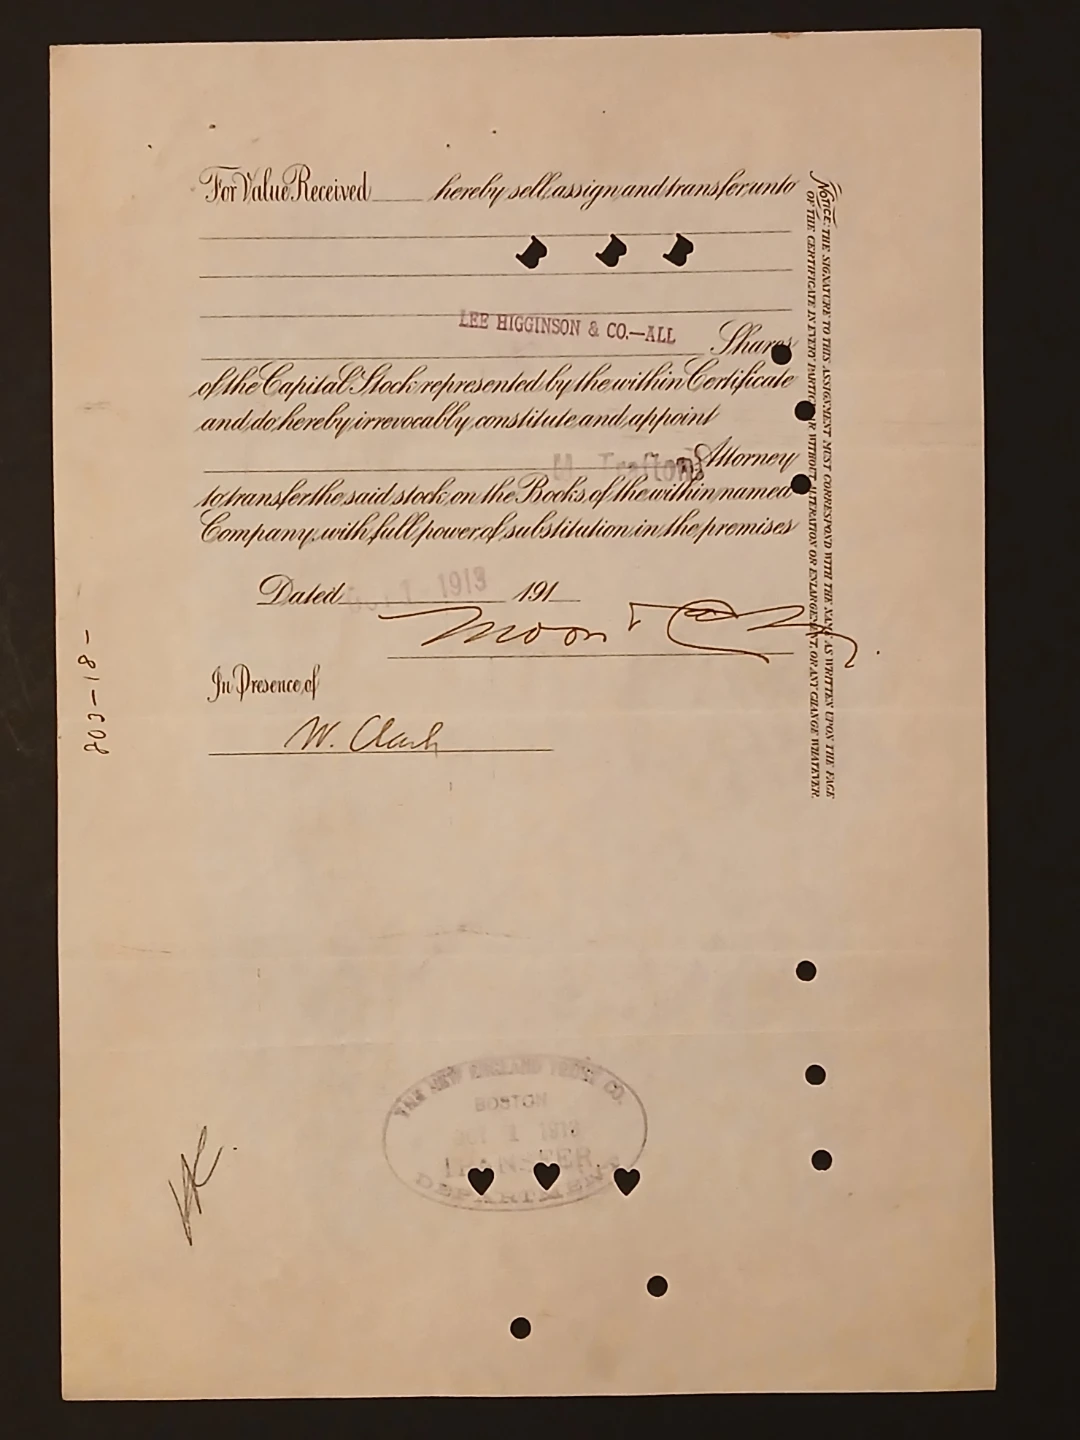 For Value Received ____ hereby sell, assign and transfer unto
LEE HIGGINSON & CO.—ALL Shares
of the Capital Stock represented by the within Certificate
and do hereby irrevocably constitute and appoint
Trafton Attorney
to transfer the said stock on the Books of the within named
Company, with full power of substitution in the premises
Dated OCT 1 1913 191__
Moon &
In Presence of
W. Clark
NOTICE: THE SIGNATURE TO THIS ASSIGNMENT MUST CORRESPOND WITH THE NAME AS WRITTEN UPON THE FACE
OF THE CERTIFICATE IN EVERY PARTICULAR WITHOUT ALTERATION OR ENLARGEMENT, OR ANY CHANGE WHATEVER.
803-18-
THE NEW ENGLAND TRUST CO.
BOSTON
OCT 1 1913
TRANSFER
DEPARTMENT